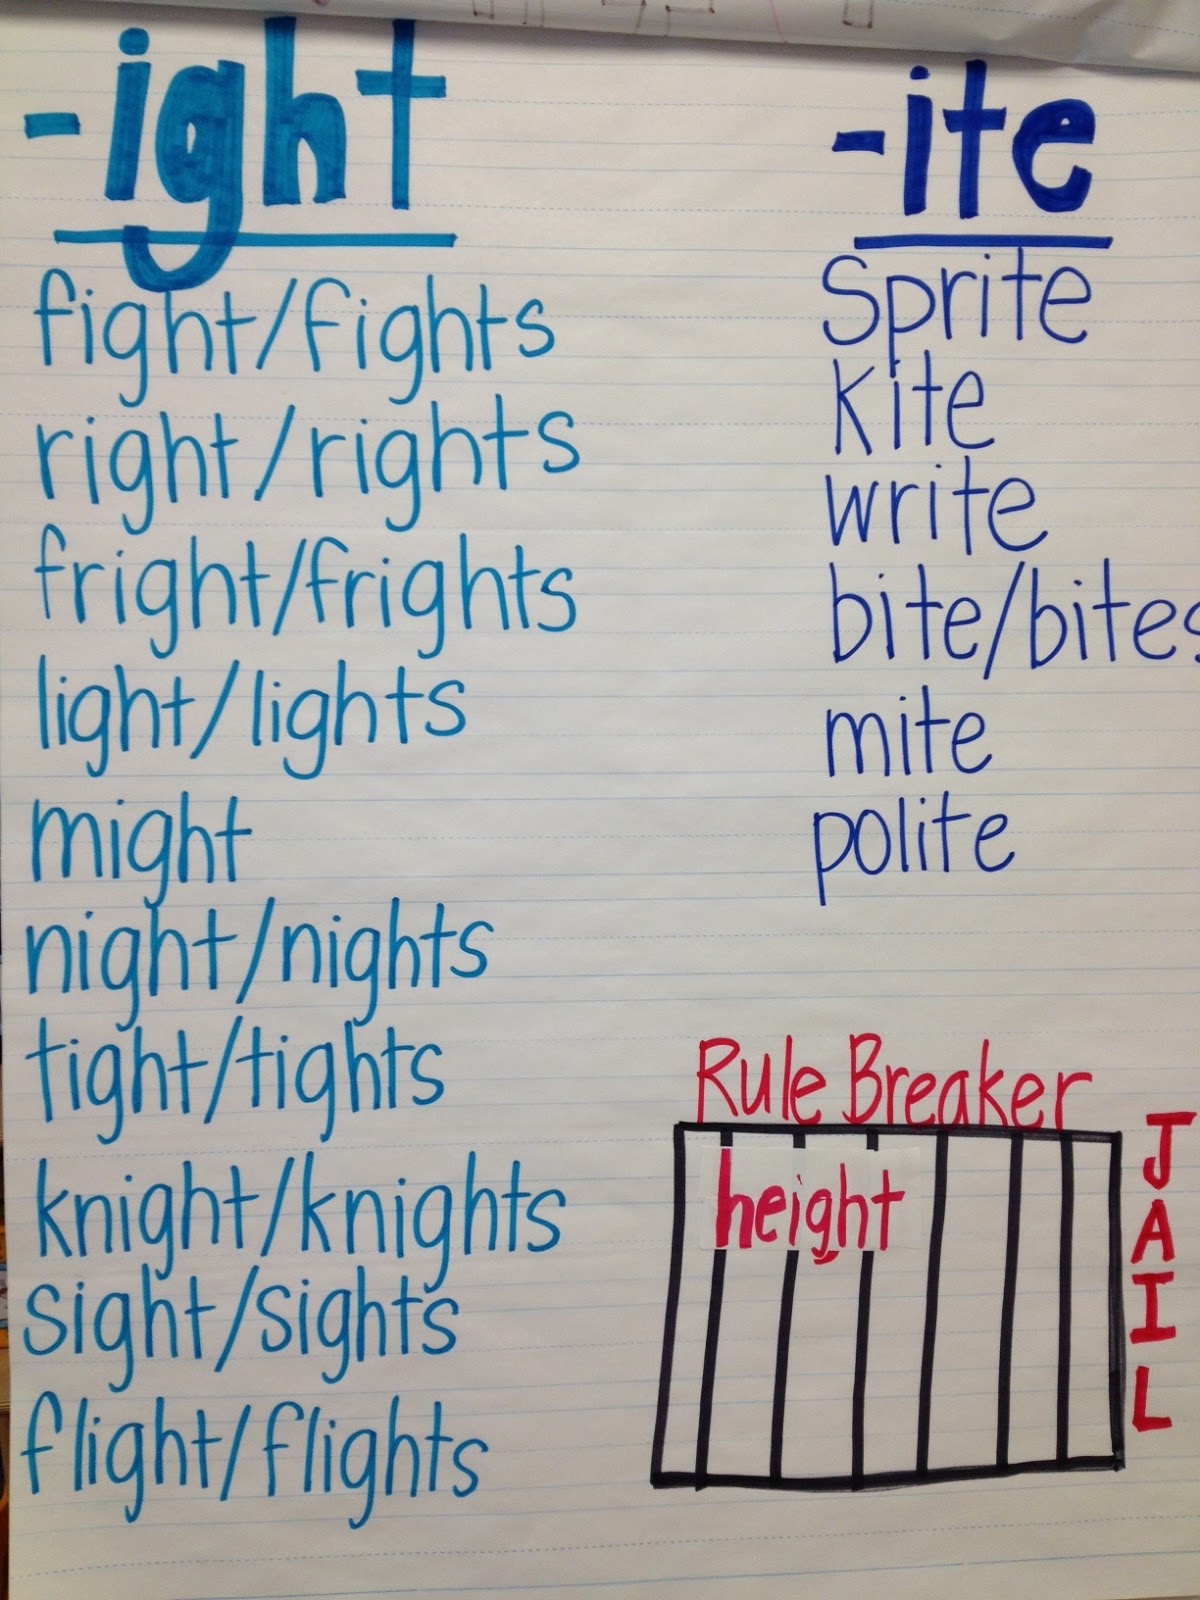 -ight
fight/fights
right/rights
fright/frights
light/lights
might
night/nights
tight/tights
knight/knights
sight/sights
flight/flights
-ite
Sprite
kite
write
bite/bites
mite
polite
Rule Breaker
JAIL
height